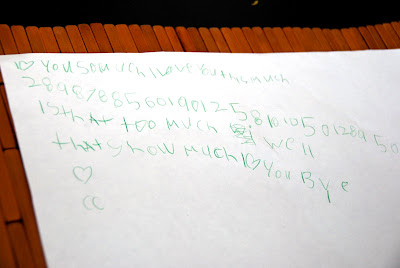 I♡ YOU SO MUCH I LOVE YOU this MUCh
28987885601901258101050128950
IS thAt tOO MUCh WEll
thAtS hOW MUCh I♡ YOU BYE
♡
CC